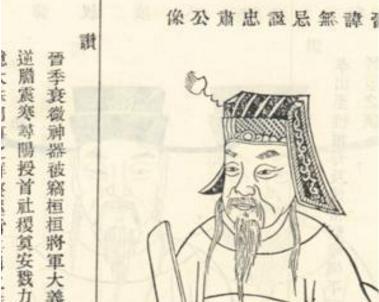 晉諱無忌諡忠肅公像
讚
晉季衰微神器被竊桓桓將軍大義
逆膽震寒尋陽授首社稷奠安戮力